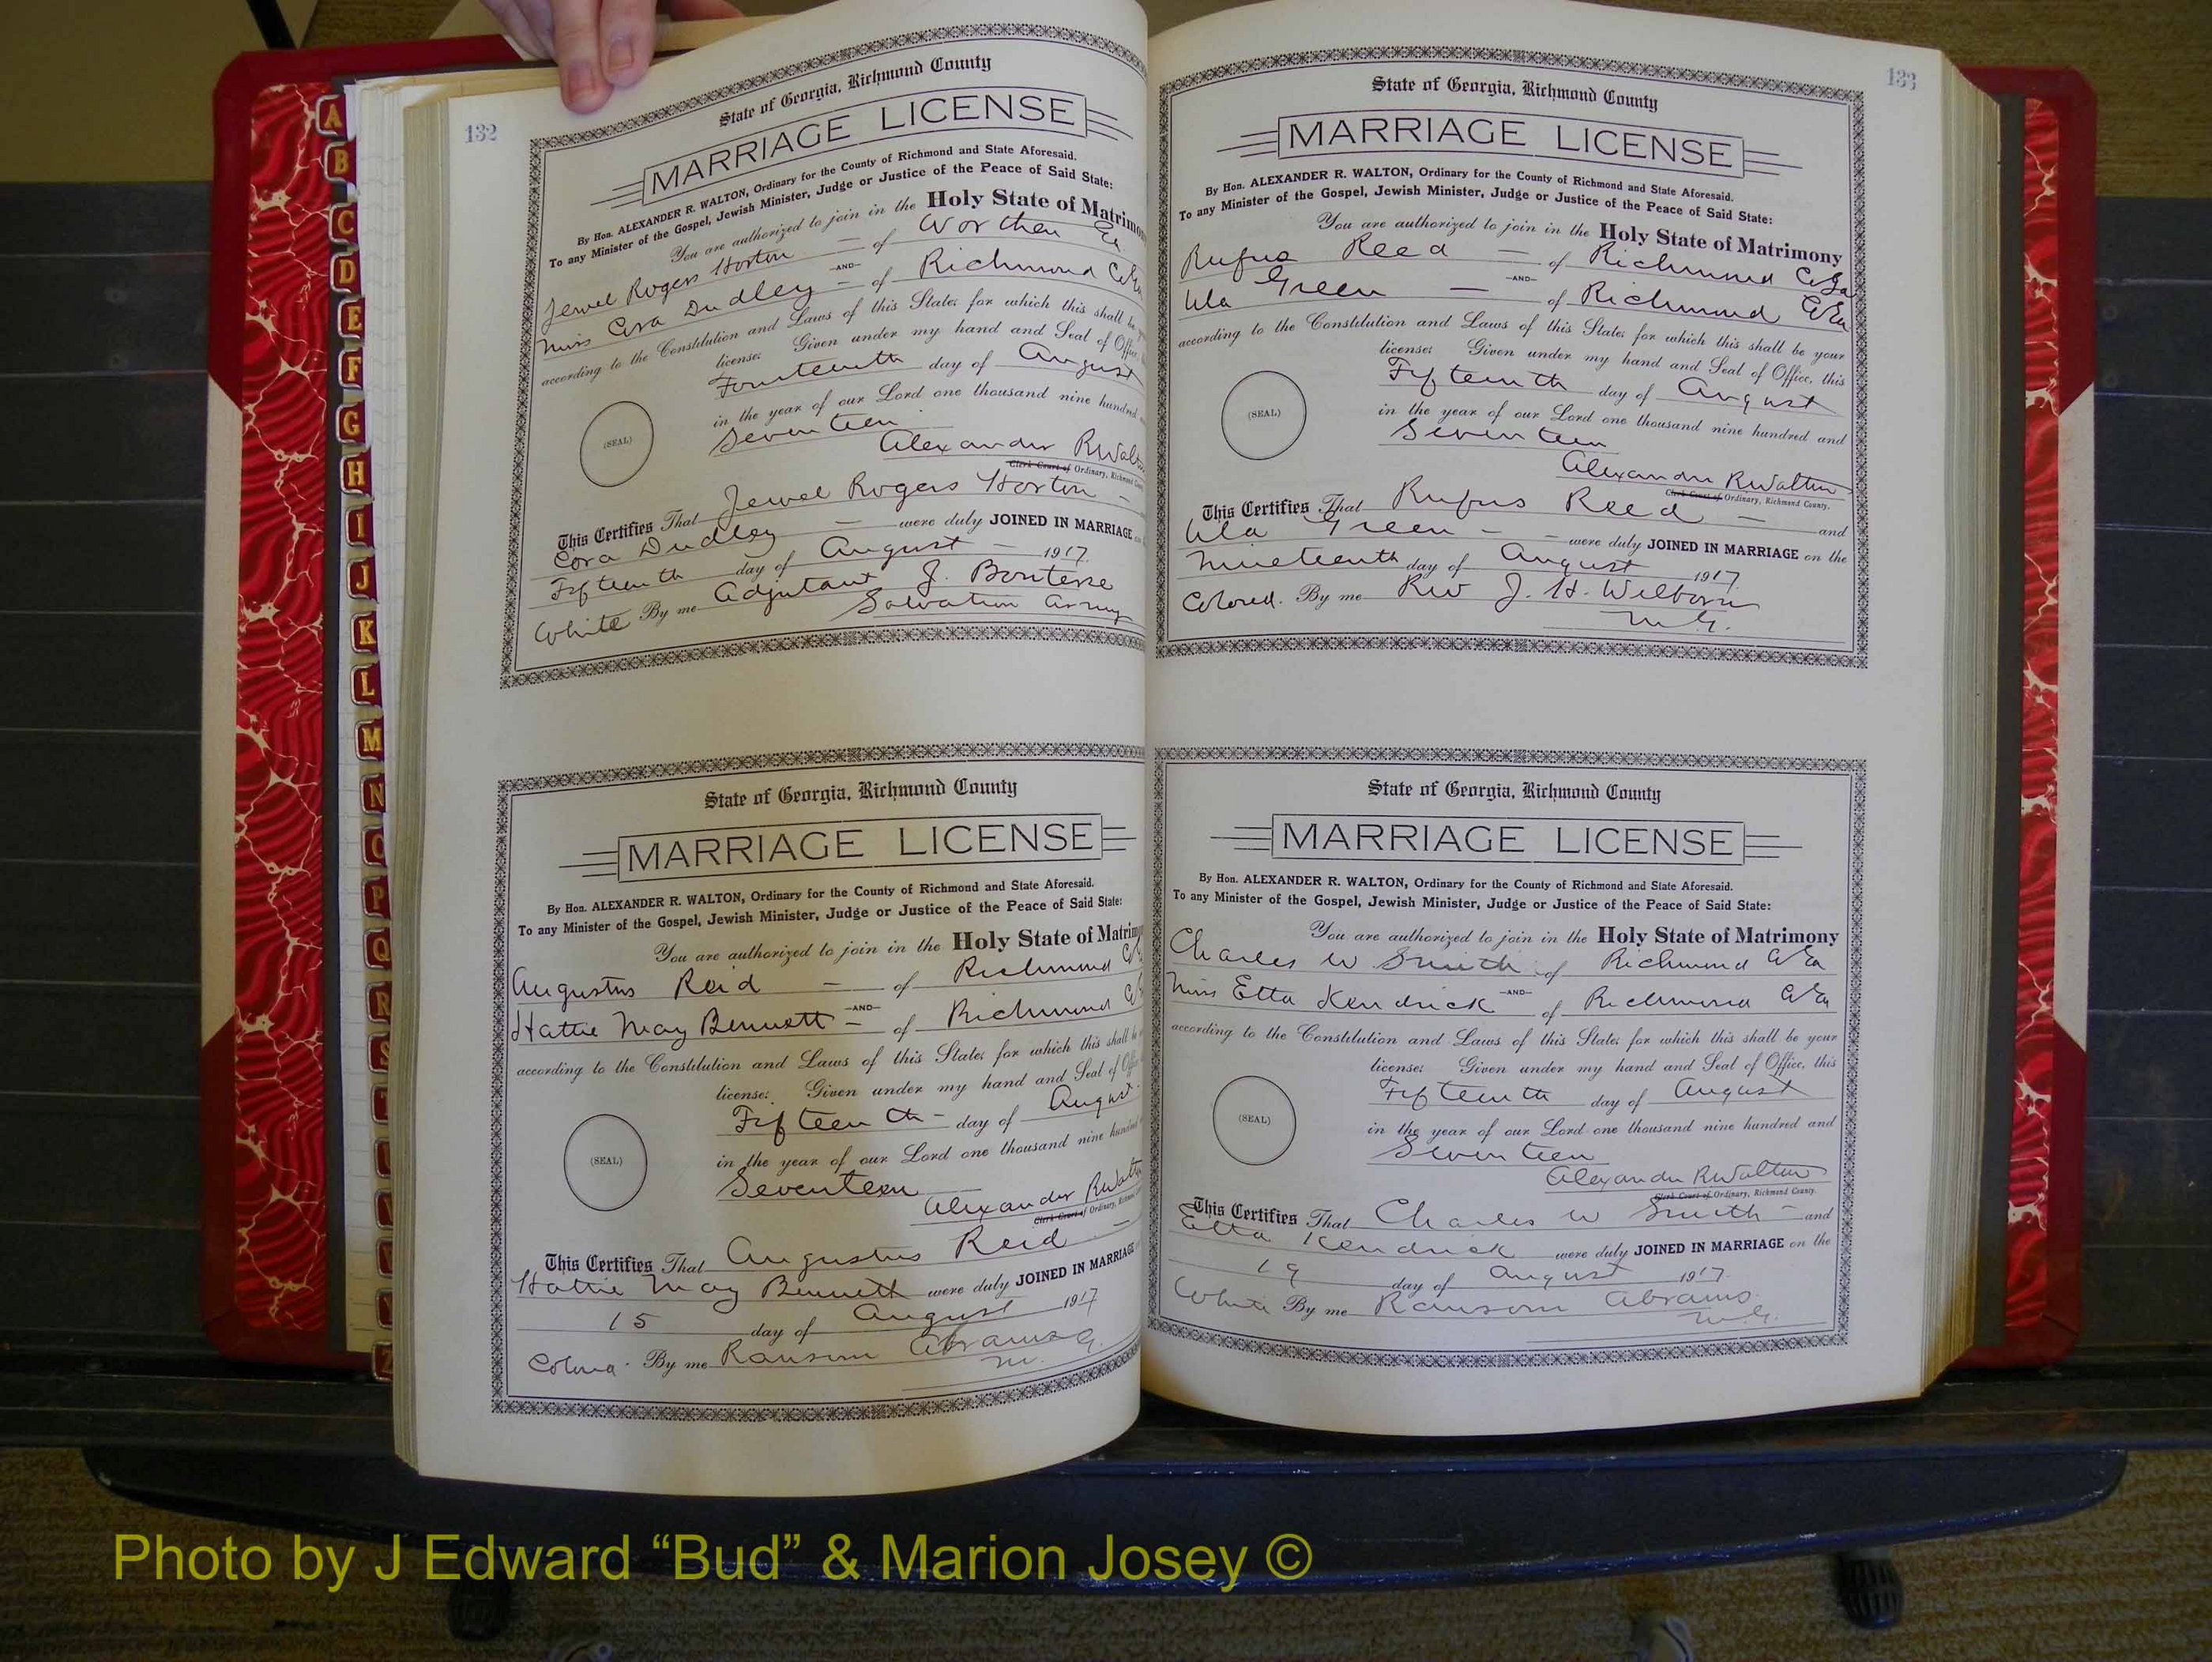 A
B
C
D
E
F
G
H
I
J
K
L
M
N
O
P
Q
R
S
132
State of Georgia, Richmond County
MARRIAGE LICENSE
By Hon. ALEXANDER R. WALTON, Ordinary for the County of Richmond and State Aforesaid.
To any Minister of the Gospel, Jewish Minister, Judge or Justice of the Peace of Said State:
You are authorized to join in the Holy State of Matrimo
Jewel Rogers Horton — of Worthen Ga
—AND—
Miss Cora Dudley — of Richmond Co Ga
according to the Constitution and Laws of this State; for which this shall be
license: Given under my hand and Seal of Office,
Fourteenth day of August
in the year of our Lord one thousand nine hundred
Seventeen
Alexander R Walton
Clerk Court of Ordinary, Richmond County
This Certifies That Jewel Rogers Horton —
Cora Dudley — were duly JOINED IN MARRIAGE
Fifteenth day of August — 1917
White By me Adjutant J.
Salvation Army
State of Georgia, Richmond County
MARRIAGE LICENSE
By Hon. ALEXANDER R. WALTON, Ordinary for the County of Richmond and State Aforesaid.
To any Minister of the Gospel, Jewish Minister, Judge or Justice of the Peace of Said State:
You are authorized to join in the Holy State of Matrim
Augustus Reid — of Richmond Co
—AND—
Hattie May Bennett — of Richmond Co
according to the Constitution and Laws of this State; for which this shall
license: Given under my hand and Seal of Office
(SEAL)
Fifteenth — day of August
in the year of our Lord one thousand nine hundred
Seventeen
Alexander R Walton
Clerk Court of Ordinary,
This Certifies That Augustus Reid —
Hattie May Bennett were duly JOINED IN MARRIAGE
15 day of August 1917
By me Ransom Abrams
M. G.
133
State of Georgia, Richmond County
MARRIAGE LICENSE
By Hon. ALEXANDER R. WALTON, Ordinary for the County of Richmond and State Aforesaid.
To any Minister of the Gospel, Jewish Minister, Judge or Justice of the Peace of Said State:
You are authorized to join in the Holy State of Matrimony
Rufus Reed — of Richmond Co Ga
—AND—
Ula Green — of Richmond Co Ga
according to the Constitution and Laws of this State; for which this shall be your
license: Given under my hand and Seal of Office, this
Fifteenth day of August
(SEAL)
in the year of our Lord one thousand nine hundred and
Seventeen
Alexander R Walton
Clerk Court of Ordinary, Richmond County.
This Certifies That Rufus Reed — and
Ula Green — were duly JOINED IN MARRIAGE on the
Nineteenth day of August 1917
Colored. By me Rev J. H. Wilborn
M. G.
State of Georgia, Richmond County
MARRIAGE LICENSE
By Hon. ALEXANDER R. WALTON, Ordinary for the County of Richmond and State Aforesaid.
To any Minister of the Gospel, Jewish Minister, Judge or Justice of the Peace of Said State:
You are authorized to join in the Holy State of Matrimony
Charles W Smith of Richmond Co Ga
—AND—
Miss Etta Kendrick of Richmond Co Ga
according to the Constitution and Laws of this State; for which this shall be your
license: Given under my hand and Seal of Office, this
Fifteenth day of August
(SEAL)
in the year of our Lord one thousand nine hundred and
Seventeen
Alexander R Walton
Clerk Court of Ordinary, Richmond County.
This Certifies That Charles W Smith — and
Etta Kendrick were duly JOINED IN MARRIAGE on the
19 day of August 1917
White By me Ransom Abrams
M. G.
Photo by J Edward “Bud” & Marion Josey ©